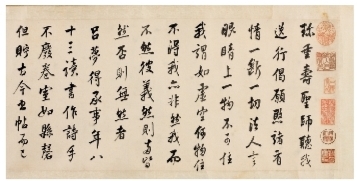 珍重壽聖師聽我
送行偈願閔諸有
情不斷一切法人言
眼睛上一物不可住
我謂如虛空何物住
不得我亦非然我而
不然彼義然則兩皆
然否則無然者
呂夢得承事年八
十三讀書作詩手
不廢卷室如懸磬
但貯古今書帖而已